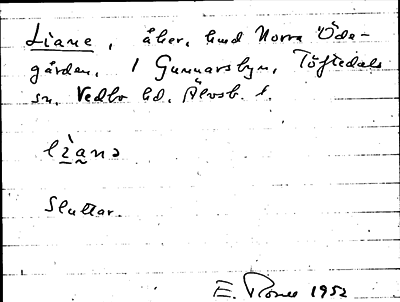 Liane, åker, hmd Norra Öde-
gården, 1 Gunnarsbyn, Töftedals
sn. Vedbo hd. Älvsb. l.
lìanə
Sluttar.
E. 1952